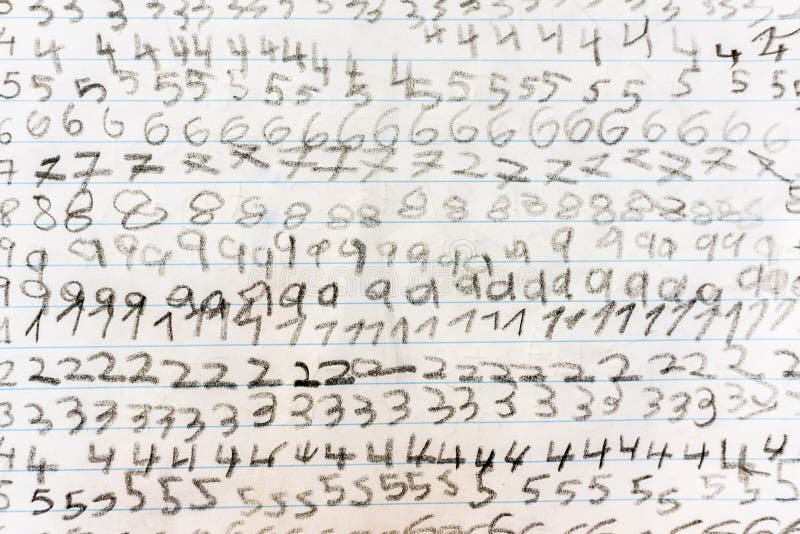 3 3 3 3 3 3 3 3 3 3 3 3 3 3 3
4 4 4 4 4 4 4 4 4 4 4 4 4 4 4 4 4 4 4 4 4 4
5 5 5 5 5 5 5 5 5 5 5 5 5 5 5 5 5 5 5 5 5
6 6 6 6 6 6 6 6 6 6 6 6 6 6 6 6 6 6 6 6 6
7 7 7 7 7 7 7 7 7 7 7 7 7 7 7 7 7 7 7 7
8 8 8 8 8 8 8 8 8 8 8 8 8 8 8 8 8 8 8
9 9 9 9 9 9 9 9 9 9 9 9 9 9 9 9 9 9 9 9 9 9 9
9 9 9 9 9 9 9 9 9 9 9 9 9 9 9 9 9 9 9 9 9 9 9
1 1 1 1 1 1 1 1 1 1 1 1 1 1 1 1 1 1 1 1 1 1 1 1 1 1
2 2 2 2 2 2 2 2 2 2 2 2 2 2 2 2 2 2 2 2 2
3 3 3 3 3 3 3 3 3 3 3 3 3 3 3 3 3 3 3 3 3 3 3 3
4 4 4 4 4 4 4 4 4 4 4 4 4 4 4 4 4 4 4 4 4 4 4
5 5 5 5 5 5 5 5 5 5 5 5 5 5 5 5 5 5 5 5 5 5